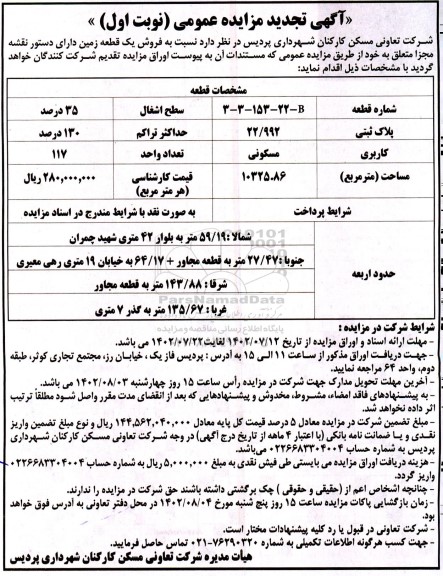 «آگهی تجدید مزایده عمومی (نوبت اول) »
شرکت تعاونی مسکن کارکنان شهرداری پردیس در نظر دارد نسبت به فروش یک قطعه زمین دارای دستور نقشه
مجزا متعلق به خود از طریق مزایده عمومی که مستندات آن به پیوست اوراق مزایده تقدیم شرکت کنندگان خواهد
گردید با مشخصات ذیل اقدام نماید:
مشخصات قطعه
شماره قطعه ۳-۳-۱۵۳-۲۲-B سطح اشغال ۳۵ درصد
پلاک ثبتی ۲۲/۹۹۲ حداکثر تراکم ۱۳۰ درصد
کاربری مسکونی تعداد واحد ۱۱۷
مساحت (مترمربع) ۱۰۳۲۵.۸۶ قیمت کارشناسی (هر متر مربع) ۲۸۰,۰۰۰,۰۰۰ ریال
شرایط پرداخت به صورت نقد با شرایط مندرج در اسناد مزایده
حدود اربعه
شمالا: ۵۹/۱۹ متر به بلوار ۴۲ متری شهید چمران
جنوبا: ۲۷/۴۷ متر به قطعه مجاور + ۶۴/۱۷ به خیابان ۱۹ متری رهی معیری
شرقا: ۱۴۳/۸۸ متر به قطعه مجاور
غربا: ۱۳۵/۶۷ متر به گذر ۷ متری
ParsNamadData
پایگاه اطلاع رسانی مناقصه و مزایده
شرایط شرکت در مزایده :
- مهلت ارائه اسناد و اوراق مزایده از تاریخ ۱۴۰۲/۰۷/۱۲ لغایت ۱۴۰۲/۰۷/۲۲ می باشد.
- جهت دریافت اوراق مذکور از ساعت ۱۱ الی ۱۵ به آدرس : پردیس فاز یک ، خیابان رز، مجتمع تجاری کوثر، طبقه
دوم، واحد ۶۴ مراجعه نمایید.
- آخرین مهلت تحویل مدارک جهت شرکت در مزایده رأس ساعت ۱۵ روز چهارشنبه ۱۴۰۲/۰۸/۰۳ می باشد.
- به پیشنهادهای فاقد امضاء، مشروط، مخدوش و پیشنهادهایی که بعد از انقضای مدت مقرر واصل شود مطلقاً ترتیب
اثر داده نخواهد شد.
- مبلغ تضمین شرکت در مزایده معادل ۵ درصد قیمت کل پایه معادل ۱۴۴,۵۶۲,۰۴۰,۰۰۰ ریال و نوع مبلغ تضمین واریز
نقدی و یا ضمانت نامه بانکی (با اعتبار ۴ ماهه از تاریخ درج آگهی) در وجه شرکت تعاونی مسکن کارکنان شهرداری
پردیس به شماره حساب ۰۲۲۶۶۸۳۳۰۴۰۰۴ می‌باشد.
- هزینه دریافت اوراق مزایده می بایستی طی فیش نقدی به مبلغ ۵,۰۰۰,۰۰۰ ریال به شماره حساب ۰۲۲۶۶۸۳۳۰۴۰۰۴
واریز گردد.
- چنانچه اشخاص اعم از (حقیقی و حقوقی ) چک برگشتی داشته باشند حق شرکت در مزایده را ندارند.
- زمان بازگشایی پاکات مزایده ساعت ۱۵ روز پنج شنبه مورخ ۱۴۰۲/۰۸/۰۴ در محل دفتر تعاونی به آدرس فوق خواهد
بود.
- شرکت تعاونی در قبول یا رد کلیه پیشنهادات مختار است.
- جهت کسب هرگونه اطلاعات تکمیلی به شماره ۷۶۲۹۰۳۲۰-۰۲۱ تماس حاصل فرمایید.
هیأت مدیره شرکت تعاونی مسکن کارکنان شهرداری پردیس